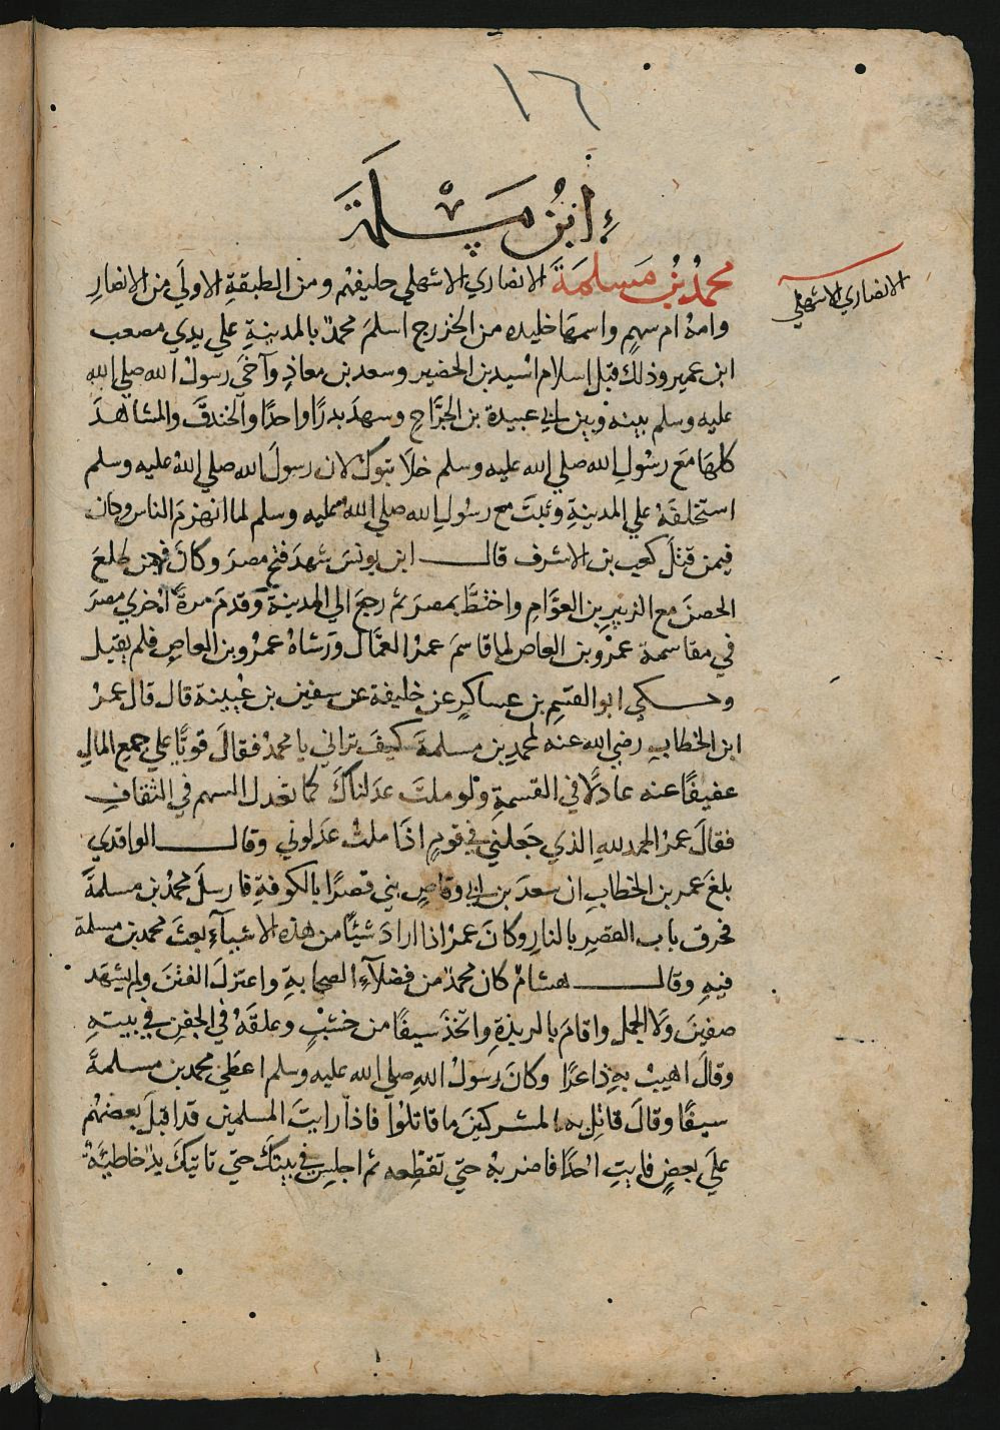 ١٦
ابنُ مَسْلَمَة
محمدُ بنُ مَسلمَةَ الانصاري الاشهلي حليفهُم ومن الطبقةِ الاولَي من الانصارِ
الانصاري الاشهلي
وامهُ ام سهمٍ واسمهَا خليده من الخزرج اسلمَ محمدٌ بالمدينةِ علي يدي مصعب
ابن عمير وذلك قبل اسلام اسُيد بن الحضير وسعد بن معاذٍ وآخَي رسولُ الله صلي الله
عليه وسلم بينه وبين ابي عبيدة بن الجرَّاحِ وسهدَ بدرًا واحدًا والخندقَ والمشاهدَ
كلهَا مَع رسُولِ الله صلي الله عليه وسلم خلَا تبوكَ لان رسولَ الله صلي اللهُ عليه وسلم
استخلفَهُ علي المدينةِ وثبتَ مع رسُولِ الله صلي الله عليه وسلم لما انهزمَ الناس وكان
فيمن قتلَ كعب بن الاشرف قال ابن يونسَ شهدَ فتح مصرَ وكانَ فيمن طلعَ
الحصنَ مع الزبيرِ بن العوَّامِ واختطَّ بمصرَ ثم رجعَ الي المدينةِ وَقدمَ مرةً اخري مصرَ
في مقاسمة عمرو بن العاص لما قاسمَ عمرُ العمَّال ورَشاهُ عمرُو بن العاصِ فلم يقبل
وحكي ابو القسم بن عساكرٍ عن خليفة عن سفين بن عُيينة قال قال عمرُ
ابن الخطابِ رضي الله عنه لمحمدِ بن مسلمةَ كيفَ تراني يا محمدُ فقالَ قويًّا علي جمع المالِ
عفيفًا عنه عادلًا في القسمةِ ولو ملتَ عدَلناكَ كما يعدل السهم في الثقافِ
فقالَ عمرُ الحمد للهِ الذي جَعلني في قومٍ اذَا ملتُ عدَلوني وقال الواقدي
بلغَ عمر بن الخطابِ ان سعدَ بن ابي وقاصٍ بني قصرًا بالكوفةِ فارسلَ محمدُ بن مسلمةَ
فحرق باب القصرِ بالنارِ وكانَ عمرُ اذا ارادَ شيئًا من هذه الاشياءِ بعثَ محمد بن مسلمة
فيهِ وقال هشامٌ كان محمدٌ من فضلآءِ الصحابةِ واعتزلَ الفتنَ ولم يشهد
صفينَ وَلا الجملِ واقامَ بالربذةِ واتخذَ سيفًا من خشبٍ وعلقَهُ في الجفن في بيتهِ
وقالَ اهيبُ بهِ ذاعرًا وكانَ رسولُ اللهِ صلي الله عليه وسلم اعطَي محمد بن مسلمةَ
سيفًا وقالَ قاتِل به المشركينَ ما قاتلُوا فاذا رايتَ المسلمين قد اقبلَ بعضهُم
علَي بعضٍ فايتِ احُدًا فاضربهُ حتي تقطِعه ثم اجلِس في بيتكَ حتي تاتيكَ يدٌ خاطيَةٌ